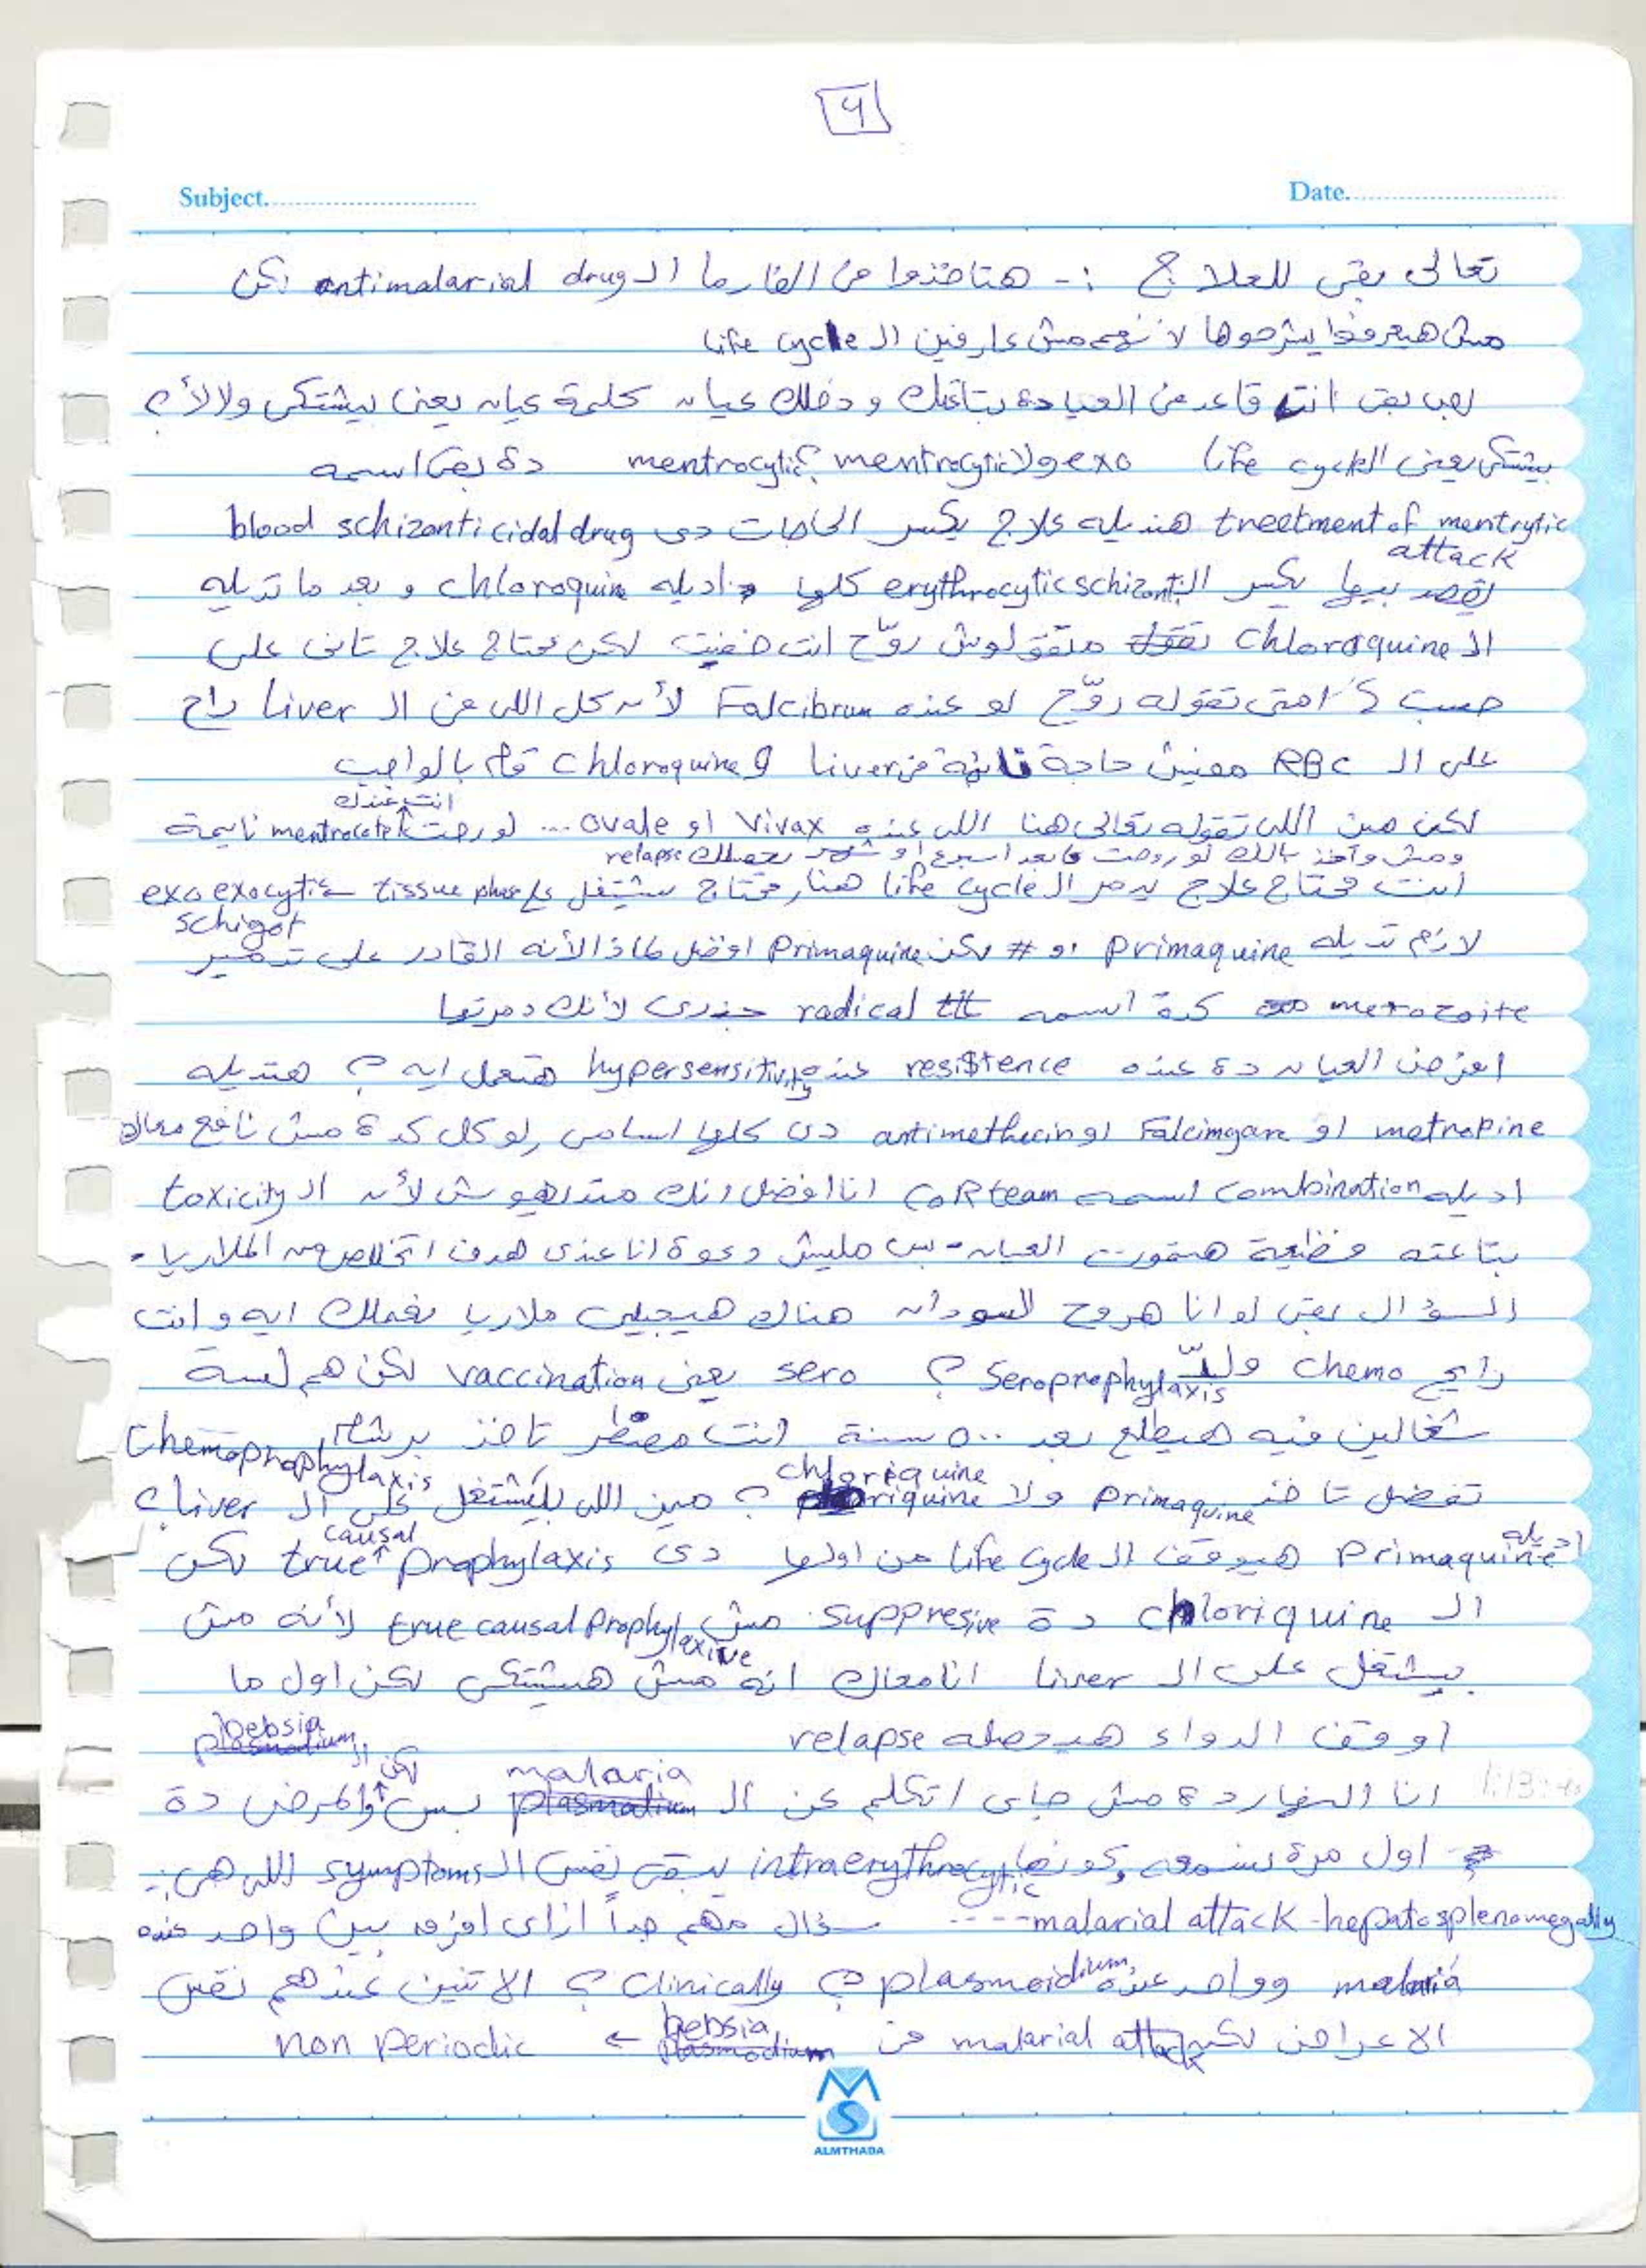 9
Subject. Date.
تعالى بقى للعلاج :- هتاخدوا فى الفارما ال antimalarial drug لكن
مش هيعرفوا يشرحوها لانهم مش عارفين ال life cycle
بقى انت قاعد فى العيادة بتاعتك ودخلك عيان كلمة عيان يعنى بيشتكى ولا لأ ؟
بيشتكى يعنى ال life cycle exo ولا mentrocytic ؟ mentrocytic دة بقى اسمه
treetment of mentrytic هنديله علاج يكسر الحاجات دى blood schizonticidal drug
attack
نقصد بيها يكسر ال erythrocytic schizont كلها اديله chloroquin و بعد ما تديله
ال Chloroquine متقولوش روّح انت خفيت لكن محتاج علاج تانى على
حسب امتى تقوله روّح لو عنده Falcibrum لأن كل اللى فى ال Liver راح
على ال RBC مفيش حاجة تانية فى liver و Chloroquine قام بالواجب
انت عندك
لكن مين اللى تقوله تعالى هنا اللى عنده Vivax او ovale ... لو روحت mentrocete نايمة
ومش واخد بالك لو روحت بعد اسبوع او شهر يحصلك relapse
انت محتاج علاج يدمر ال life cycle هنا محتاج يشتغل على tissue phase exo exocytic
schizot
لازم تديله primaquine او # لكن Primaquine افضل لماذا لأنه القادر على تدمير
merozoite كدة اسمه radical ttt جذرى لأنك دمرتها
افرض العيان دة عنده resistence عنده hypersensitivity هتعمل ايه ؟ هتديله
metrapine او Falcimgare او antimethecin دى كلها اساسى لو كل كدة مش نافع معاك
اديله combination اسمه CoRteam انا افضل انك متدهوش لأن ال toxicity
بتاعته فظيعة هيموت العيان - بس مليش دعوة انا عندى هدف اتخلص من الملاريا -
السؤال بقى لو انا هروح السودان هناك هيجيلى ملاريا نعملك ايه و انت
رايح chemo ولا Seroprophylaxis ؟ sero يعنى vaccination لكن هم لسة
شغالين فيه هيطلع بعد ٥٠٠ سنة انت مضطر تاخد برشام Chemoprophylaxis
chloriquine
تفضل تاخد Primaquine ولا ؟ مين اللى بيشتغل على ال liver ؟
causal
اديله Primaquine هيوقف ال life cycle من اولها دى true prophylaxis لكن
ال chloriquine دة suppresive مش true causal prophylexive لأنه مش
بيشتغل على ال liver انا معاك انه مش هيشتكى لكن اول ما
اوقف الدواء هيحصله relapse
bebsia
لكن ال
malaria
انا النهاردة مش جاى اتكلم عن ال بس والمرض دة
اول مرة نسمعه كونها intraerythrocytic يبقى نفس ال symptoms اللى هى :-
malarial attack - hepatosplenomegally ---- سؤال مهم جداً ازاى افرق بين واحد عنده
malaria وواحد عنده plasmoidium ؟ clinically ؟ الاتنين عندهم نفس
الاعراض لكن malarial attack فى bebsia ← non periodic
ALMTHADA